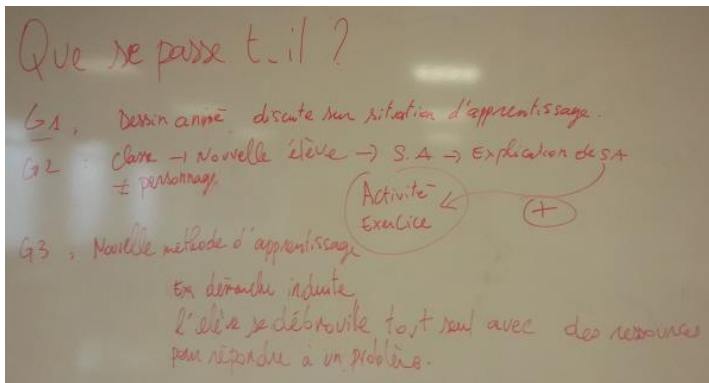 Que se passe t-il ?
G1, Dessin animé discute sur situation d'apprentissage.
G2 : classe → Nouvelle élève → S.A → Explication de SA
≠ personnage
Activité
Exercice
+
G3, Nouvelle méthode d'apprentissage
Ex démarche inducte
l'elève se débrouille tout seul avec des ressources
pour répondre à un problème.